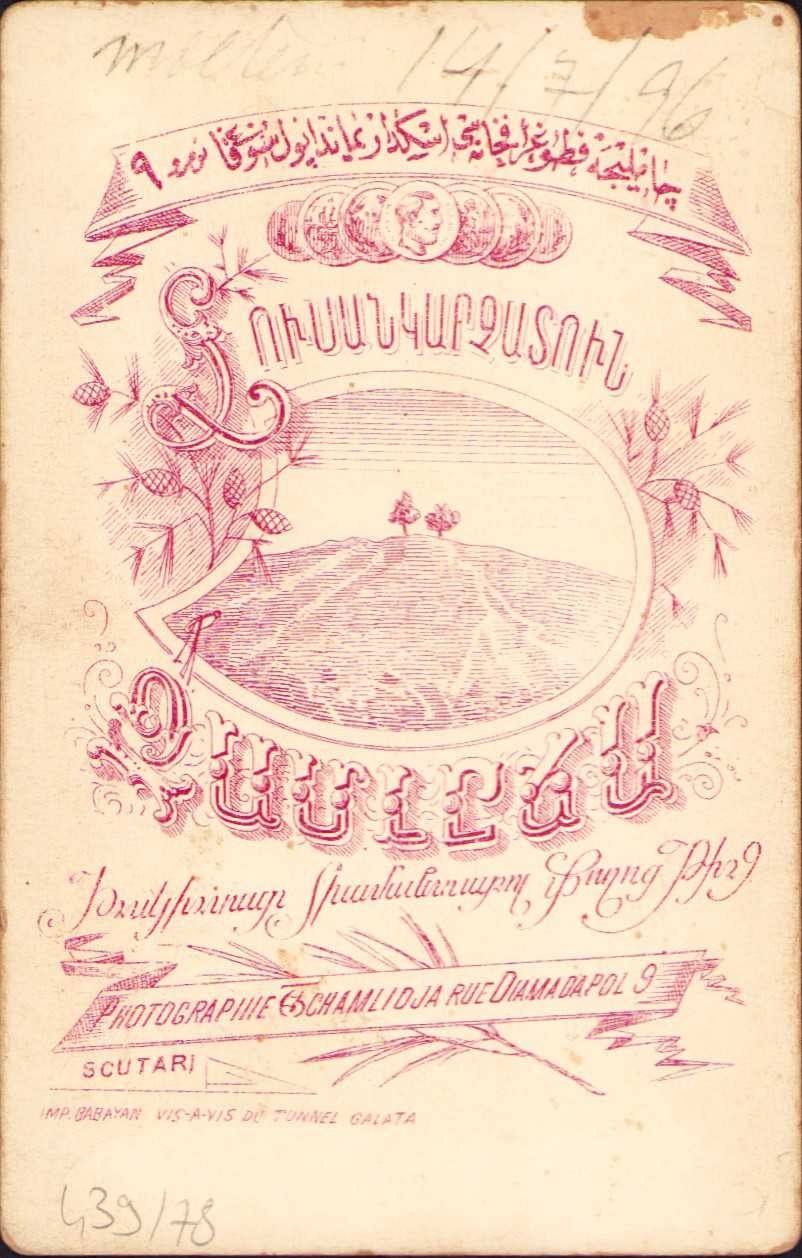 14/7/96
چاملیجه فطوغرافخانه‌جی اسکدار سوقاغی نومرو ٩
ԼՈՒՍԱՆԿԱՐՉԱՏՈՒՆ
ՉԱՄԼԸՃԱ
Փողոց Թիւ 9
PHOTOGRAPHIE TSCHAMLIDJA RUE DIAMADAPOL 9
SCUTARI
IMP. BABAYAN VIS-A-VIS DU TUNNEL GALATA
439/78